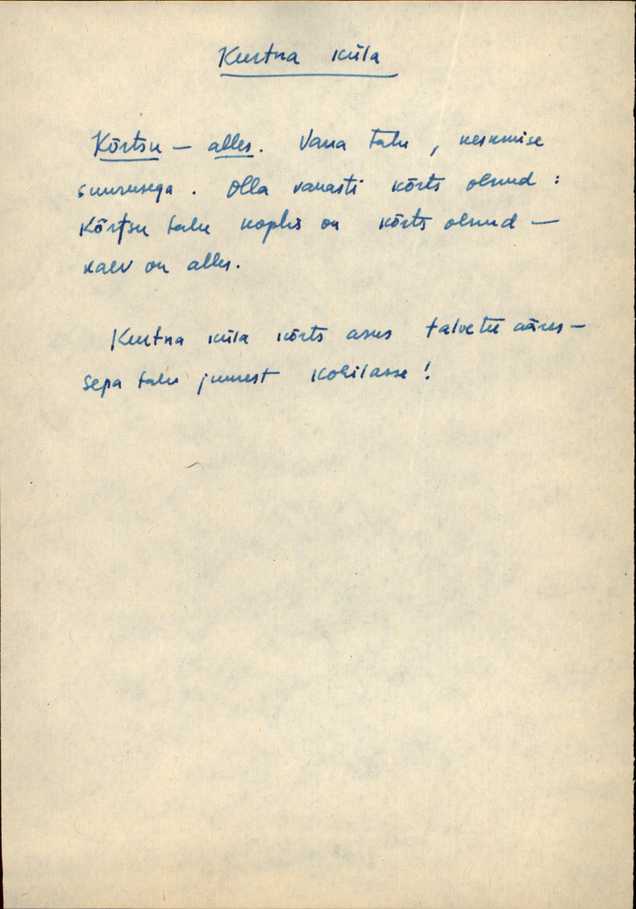 Kurtna küla
Kõrtsu – alles. Vana talu, keskmise
suurusega. Olla vanasti kõrts olnud:
Kõrtsu talu koplis on kõrts olnud –
kaev on alles.
Kurtna küla kõrts asus talvetee ääres –
Sepa talu juurest Kohilasse!